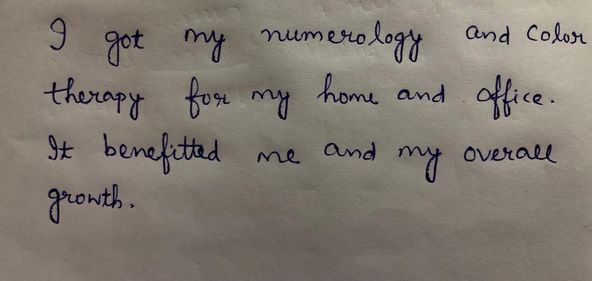 I got my numerology and color
therapy for my home and office.
It benefitted me and my overall
growth.